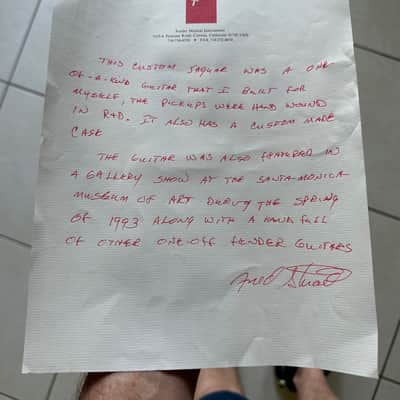 Fender Musical Instruments
THIS CUSTOM JAGUAR WAS A ONE
OF-A-KIND GUITAR THAT I BUILT FOR
MYSELF, THE PICKUPS WERE HAND WOUND
IN R+D. IT ALSO HAS A CUSTOM MADE
CASE
THE GUITAR WAS ALSO FEATURED IN
A GALLERY SHOW AT THE SANTA-MONICA
MUSEUM OF ART DURING THE SPRING
OF 1993 ALONG WITH A HAND FULL
OF OTHER ONE-OFF FENDER GUITARS
Fred Stuart